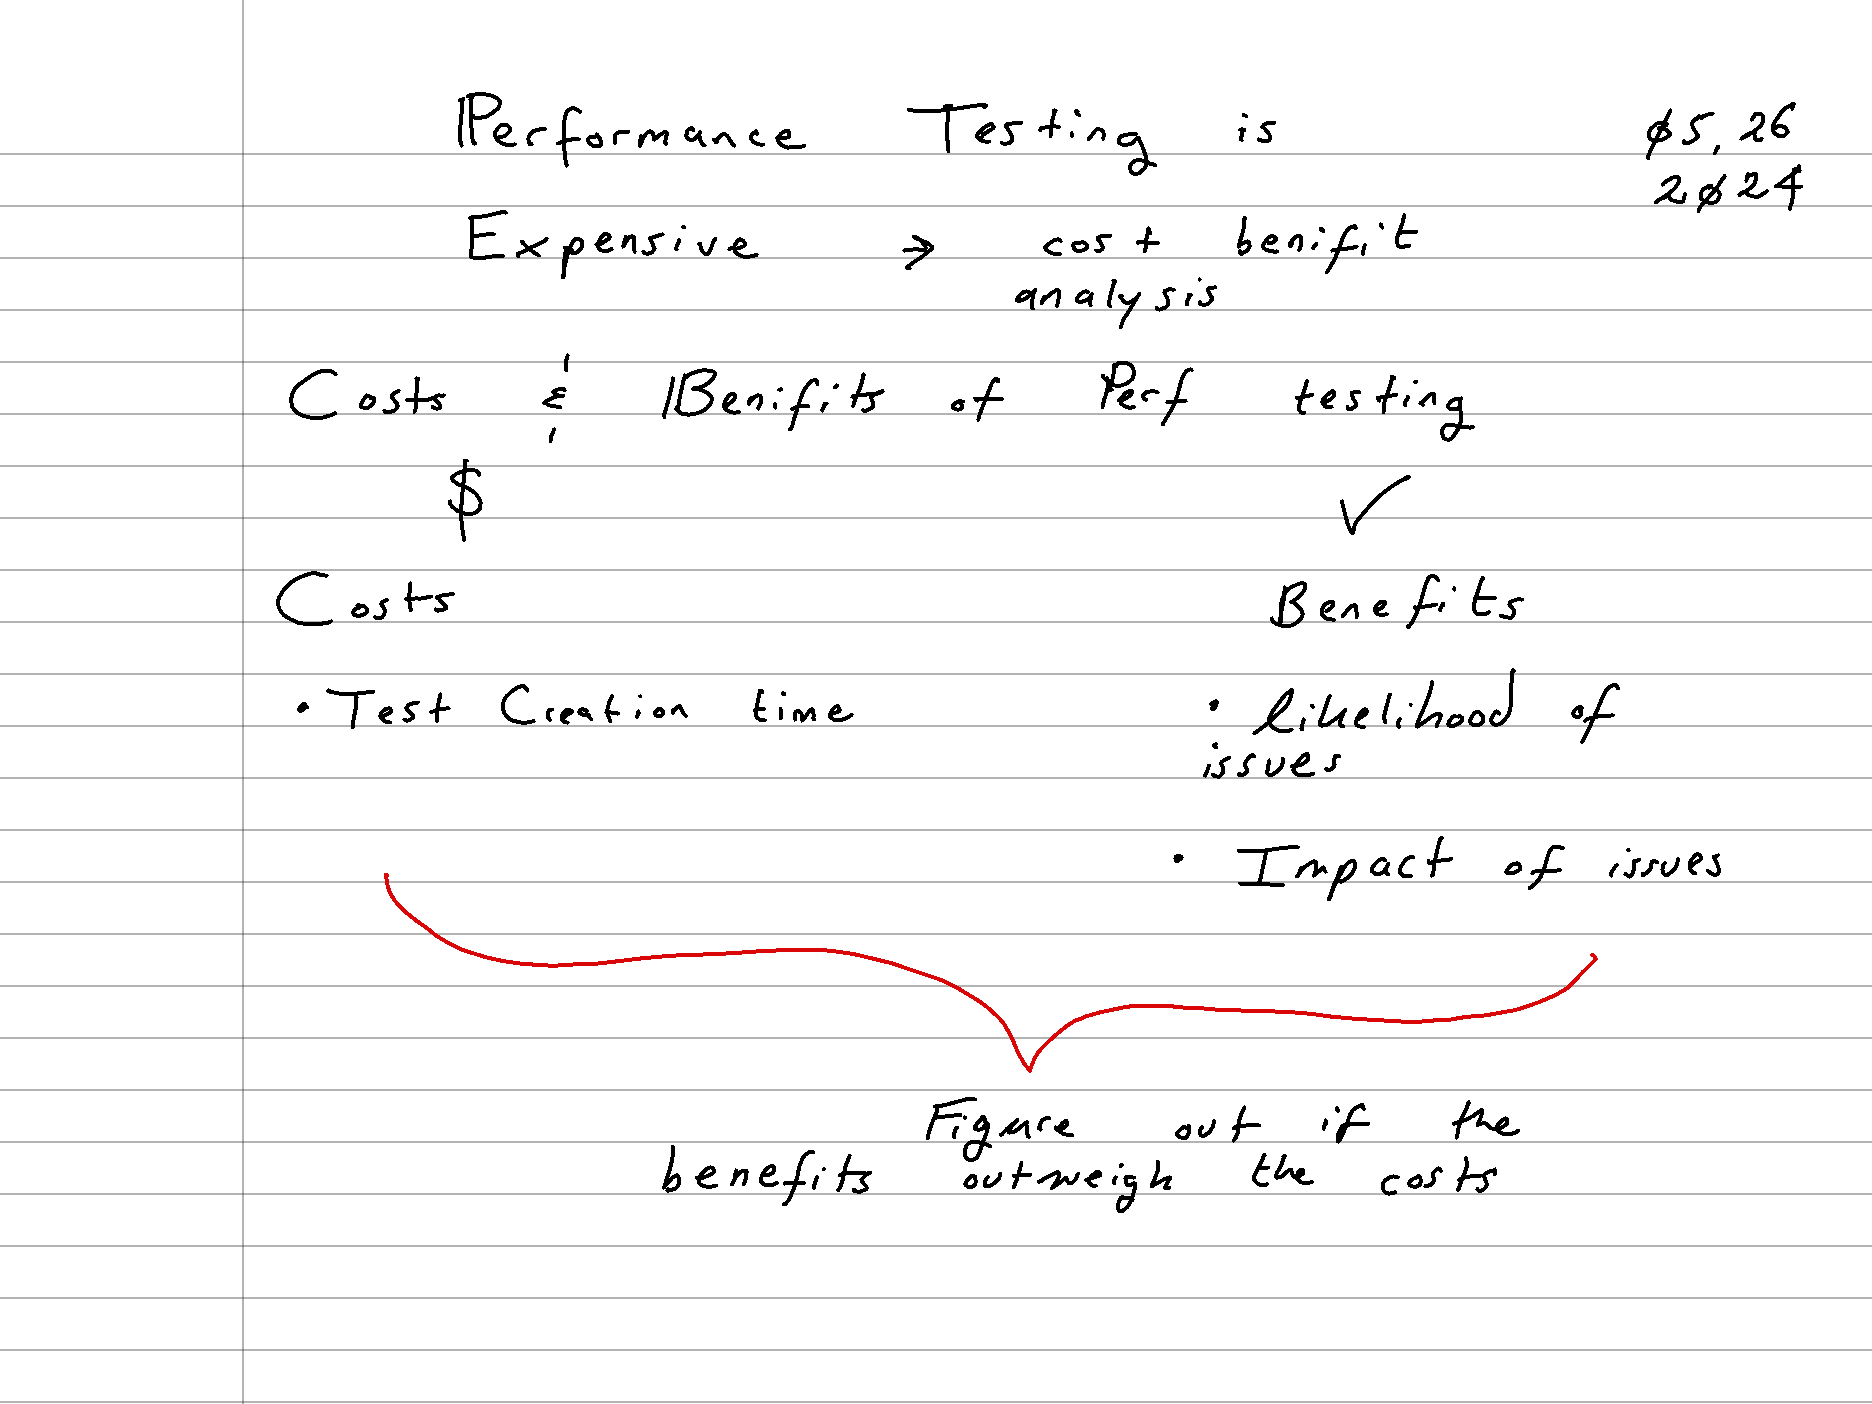 Performance Testing is
Ø5, 26
2Ø24
Expensive → cost benifit
analysis
Costs & Benifits of Perf testing
$ ✓
Costs
Benefits
• Test Creation time
• likelihood of
issues
• Impact of issues
Figure out if the
benefits outweigh the costs